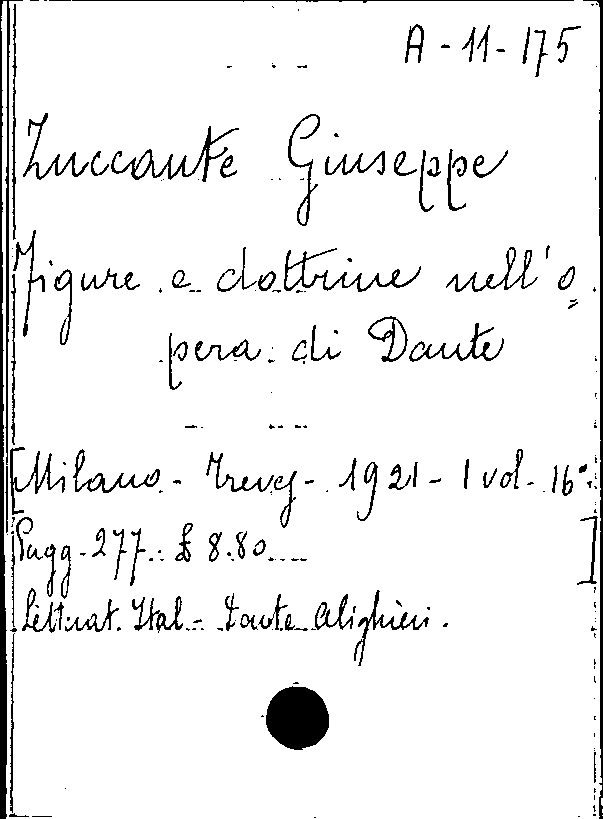 A-11-175
Zuccante Giuseppe
Figure e dottrine nell'o=
pera di Dante
[Milano - Treves - 1921 - 1 vol - 16°.
Pagg - 277. £ 8.80 ]
Letterat. Ital - Dante Alighieri.